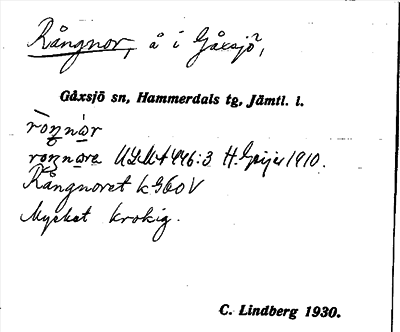 Rångnor, å i Gåxsjö,
Gåxsjö sn, Hammerdals tg, Jämtl. l.
roŋnår
roŋnåra ULMA 446:3 H. Geijer 1910.
Rångnoret k G60V
Mycket krokig.
C. Lindberg 1930.